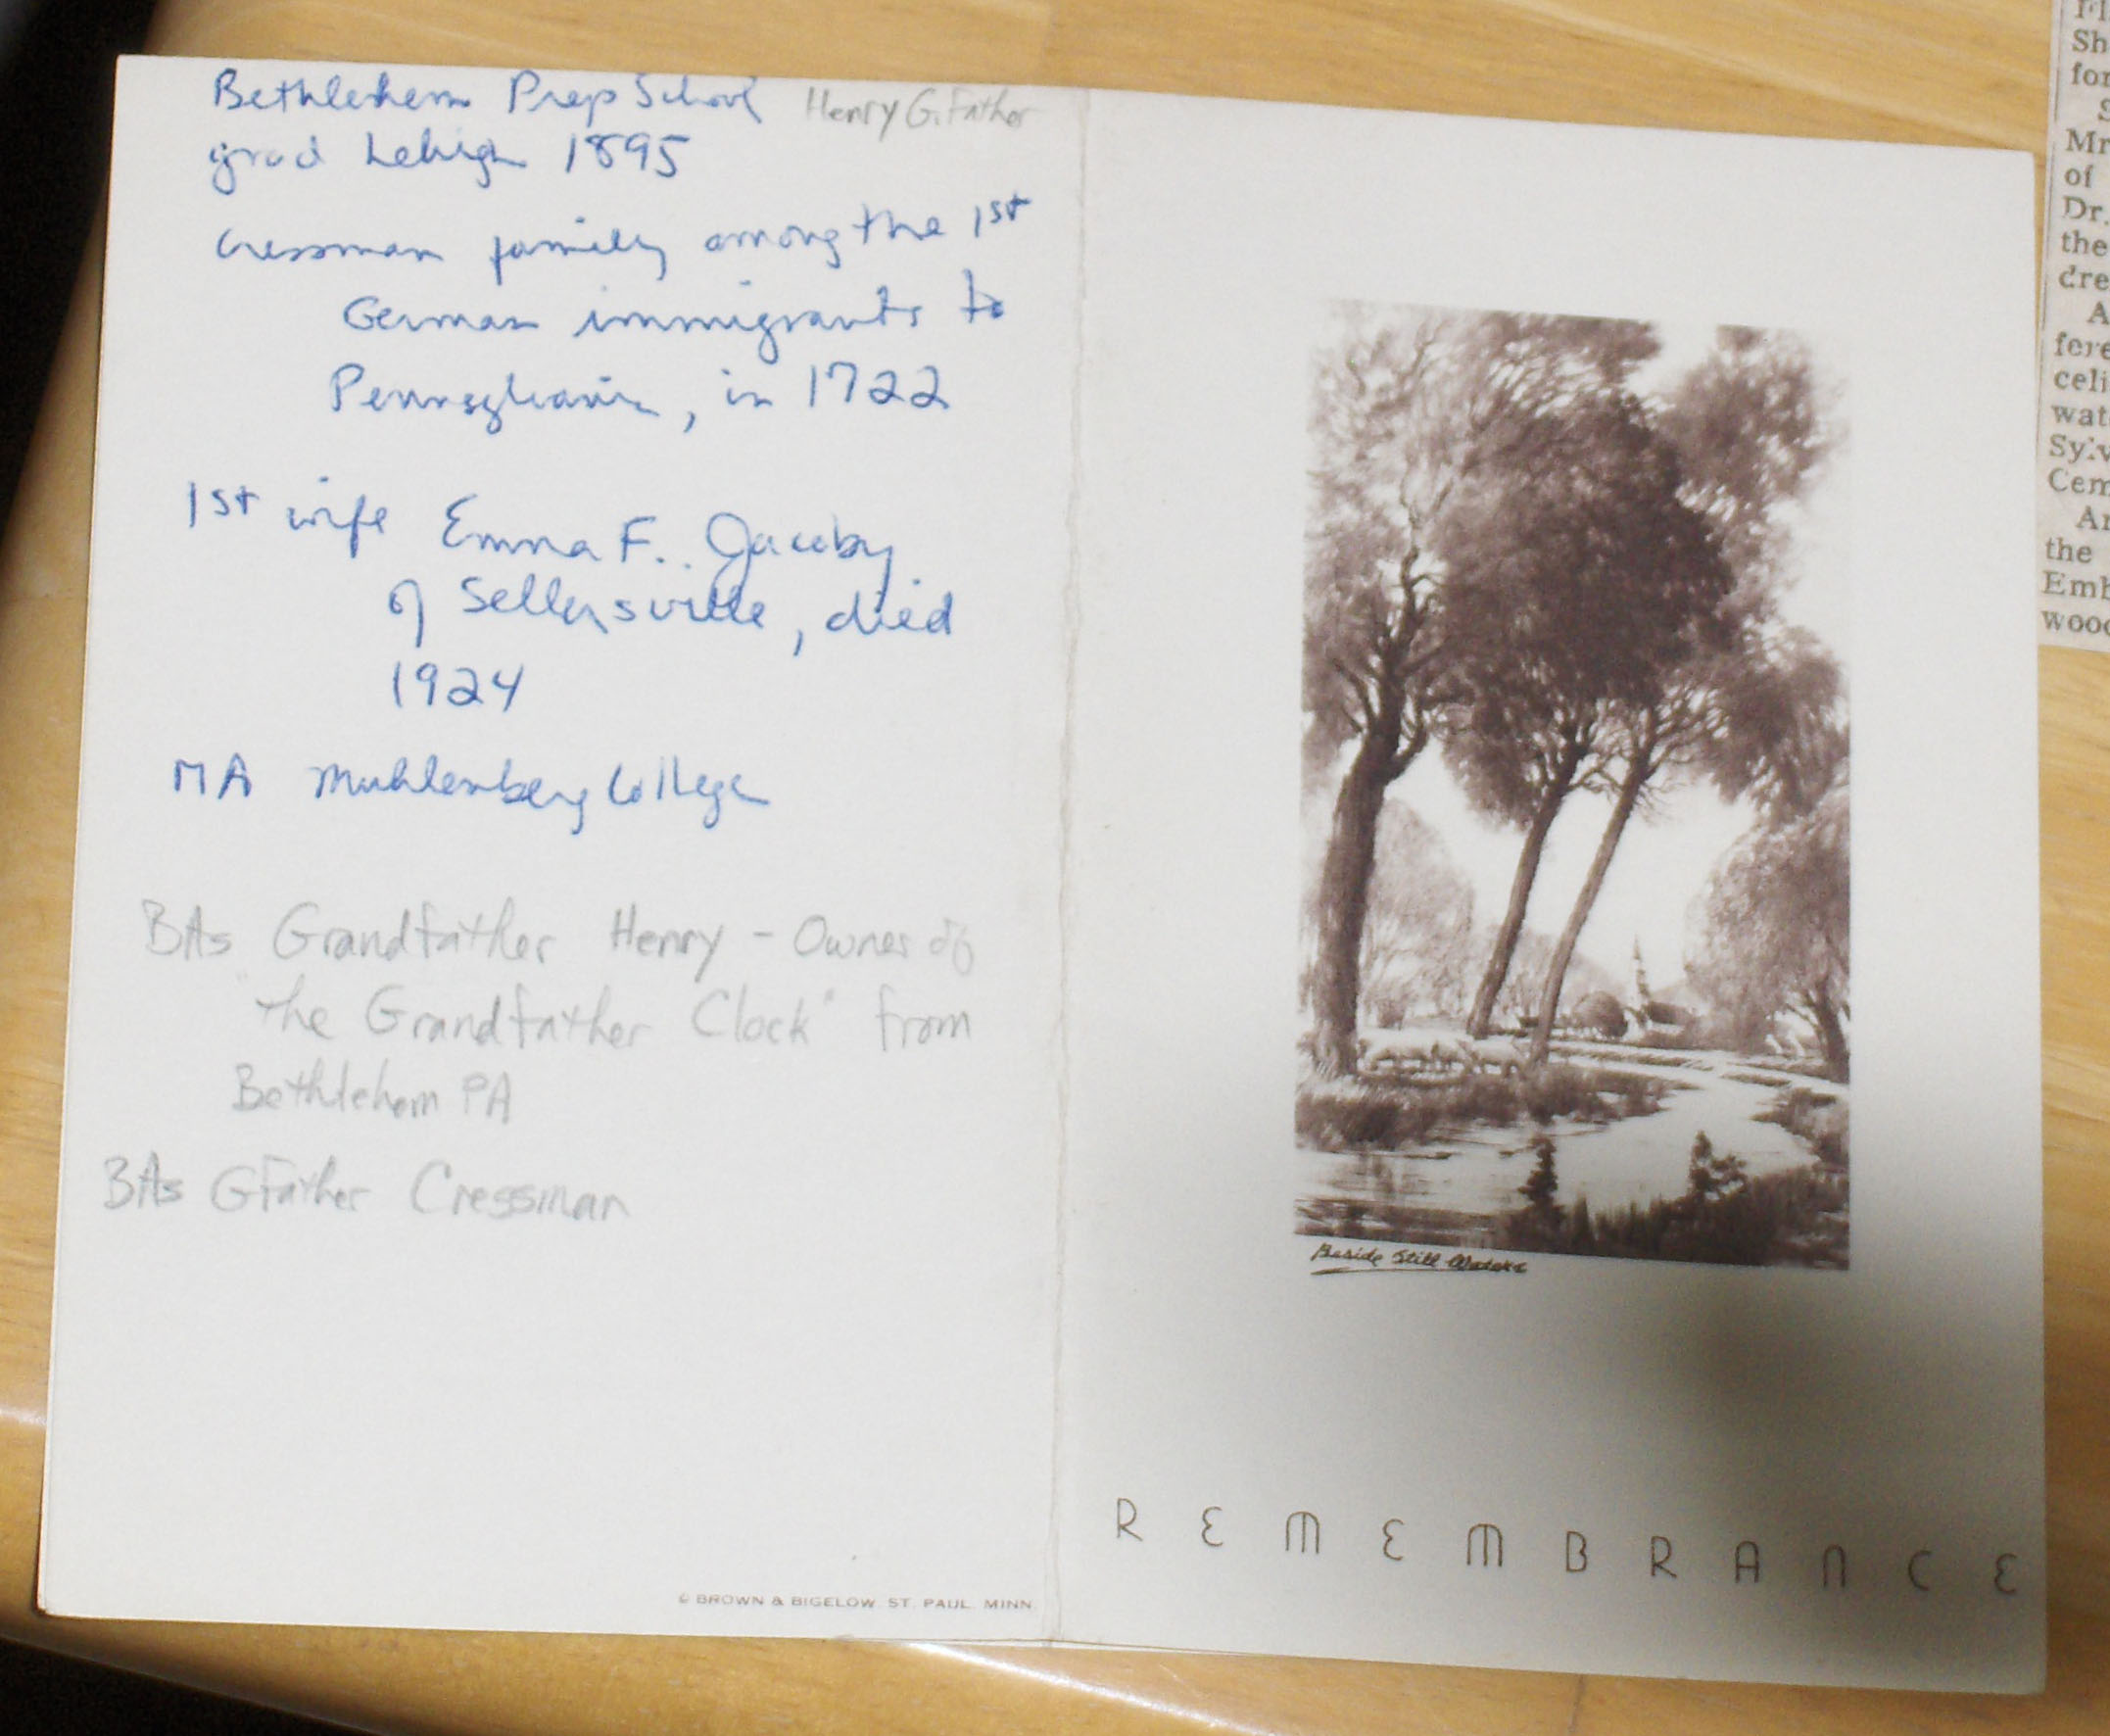 Bethlehem Prep School Henry G.Father
grad Lehigh 1895
Cressman family among the 1st
German immigrants to
Pennsylvania, in 1722
1st wife Emma F. Jacoby
of Sellersville, died
1924
MA Muhlenberg College
BAs Grandfather Henry - Owner of
"The Grandfather Clock" from
Bethlehem PA
BAs GFather Cressman
© BROWN & BIGELOW ST. PAUL. MINN.
Beside Still Waters
REMEMBRANCE
Sh
for
S
Mr
of
Dr.
the
dre
A
fere
celi
wat
Sylv
Cem
Ar
the
Emb
wood